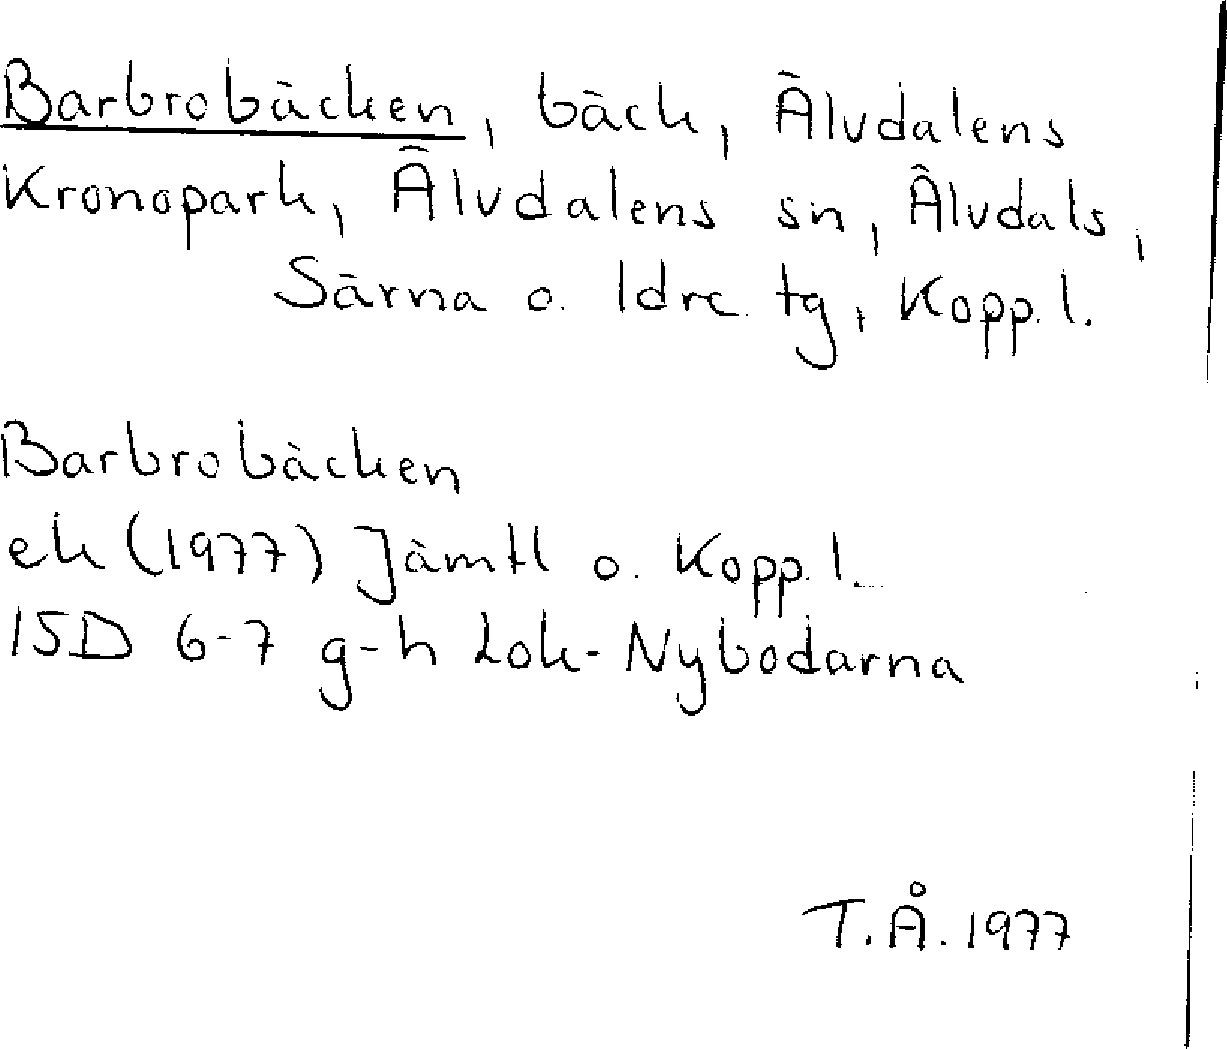 Barbrobäcken, bäck, Älvdalens
Kronopark, Älvdalens sn, Älvdals,
Särna o. Idre tg, Kopp. l.
Barbrobäcken
ek (1977) Jämtl o. Kopp. l.
15D 6-7 g-h Lok-Nybodarna
T.Å. 1977